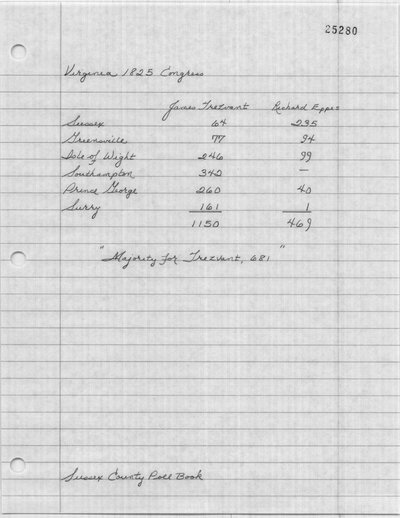 25280
Virginia 1825 Congress
James Trezvant Richard Eppes
Sussex 64 235
Greensville 77 94
Isle of Wight 246 99
Southampton 342 —
Prince George 260 40
Surry 161 1
1150 469
"Majority for Trezvant, 681"
Sussex County Poll Book